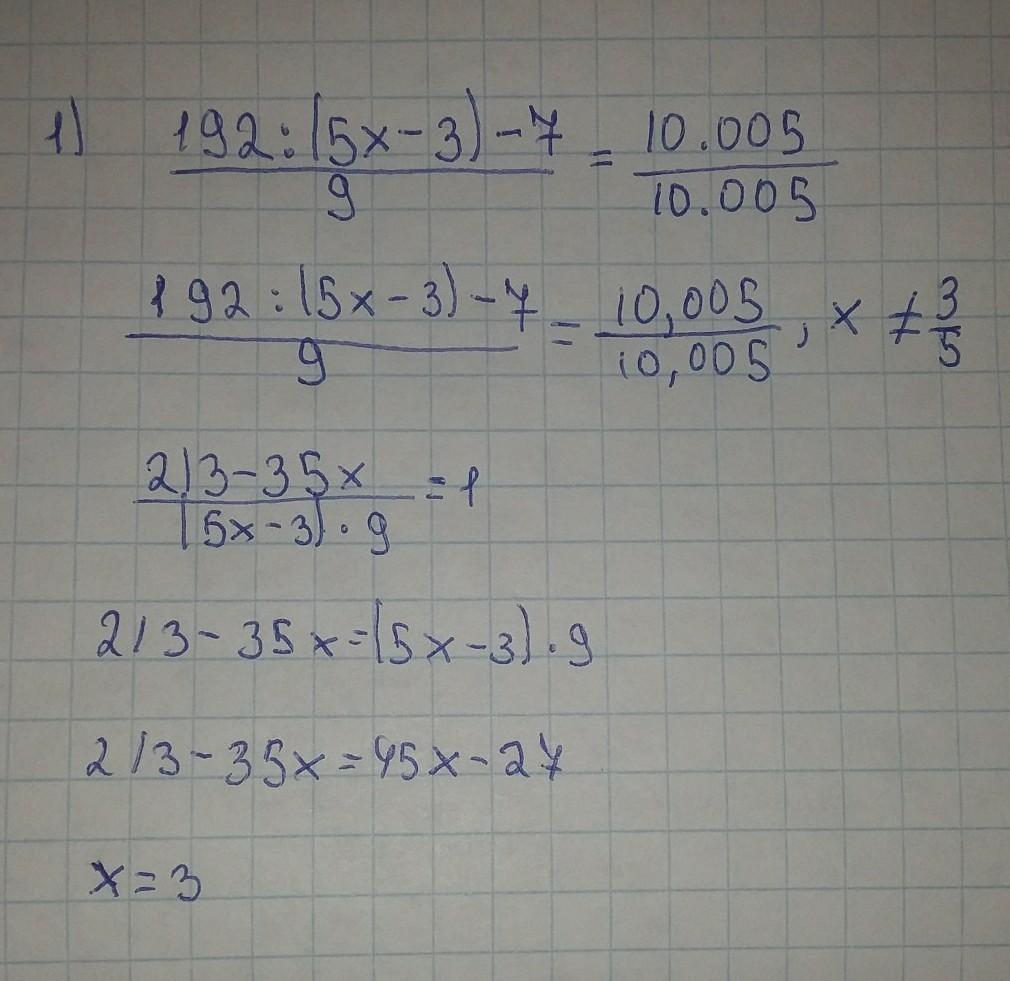 1) (192:(5x-3)-7)/9 = 10.005/10.005
(192:(5x-3)-7)/9 = 10,005/10,005, x ≠ 3/5
(213-35x)/((5x-3)·9) = 1
213-35x=(5x-3)·9
213-35x=45x-27
x=3